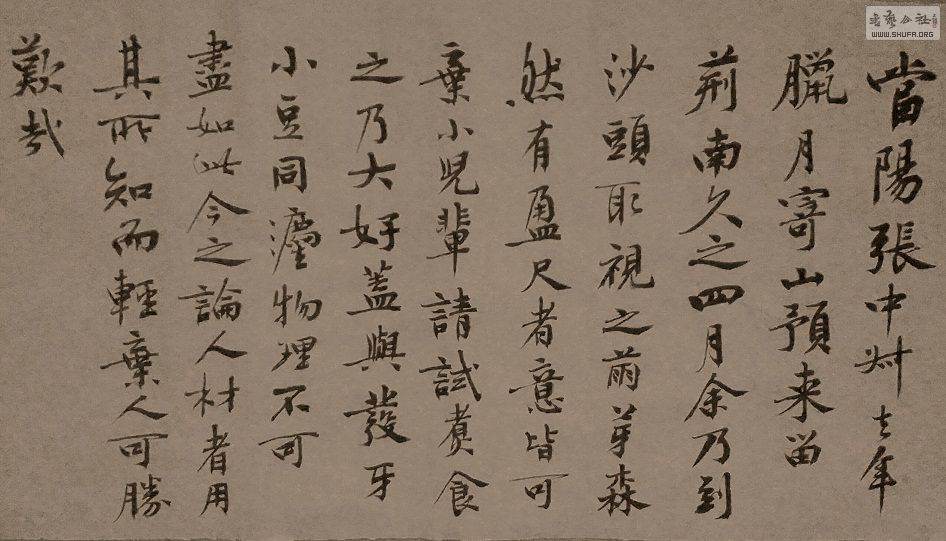 當陽張中叔去年
臘月寄山預来留
荊南久之四月余乃到
沙頭取視之萌芽森
然有盈尺者意皆可
棄小兒輩請試煑食
之乃大好蓋與發牙
小豆同灋物理不可
盡如此今之論人材者用
其所知而輕棄人可勝
歎哉
书艺公社
WWW.SHUFA.ORG